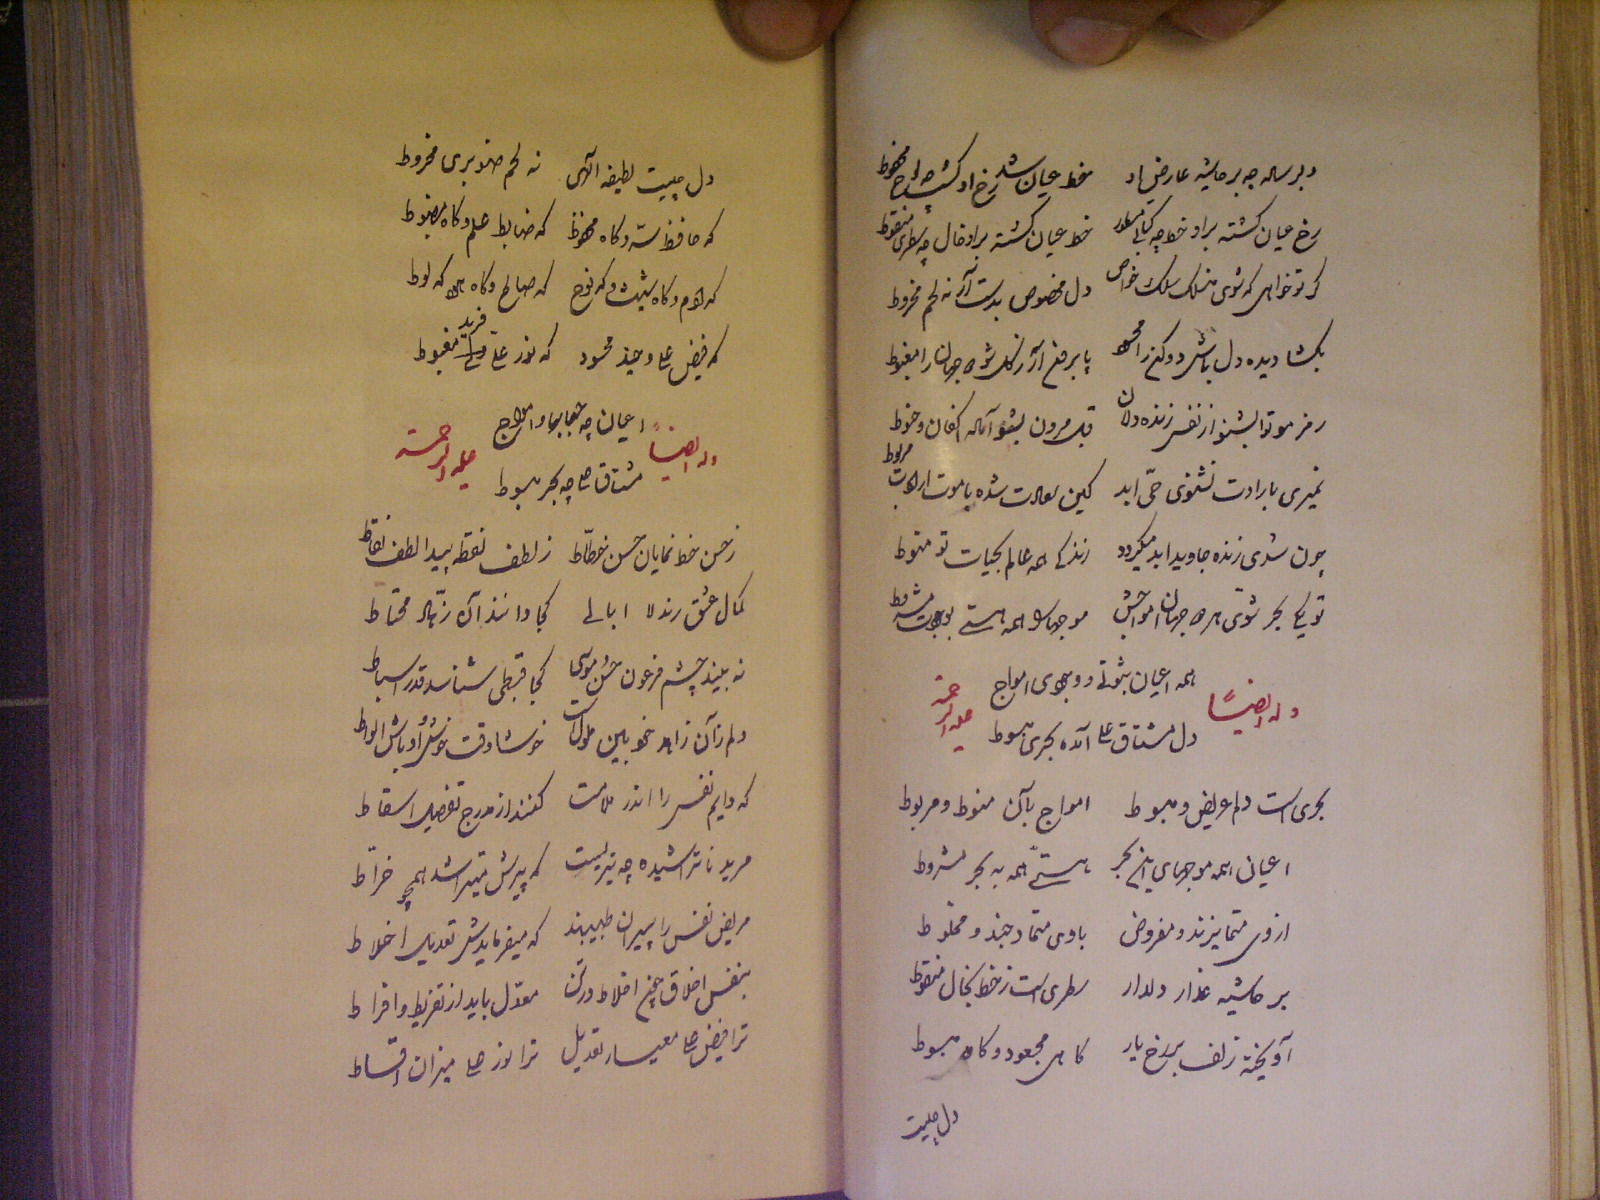 دلبر ساله چه بر حاشیه عارض او خط عیان شد رخ او گشت چه لوح محفوظ
رخ عیان گشته بر او خط چه کتابی مسطور خط عیان گشته بر او خال چه سطری منقوط
گر تو خواهی که شوی منسلک سلک خواص دل مخصوص بدست آر نه لحم مخروط
بگشا دیده دل باش دو
رمز موتوا بشنو از نفس زنده دلان قبل مردن بشنو
نمیری بارادت نشنوی حی ابد کین سعادت شده با موت ارادت مربوط
چون شدی زنده جاوید ابد میگردد زندگی همه عالم بحیات تو منوط
تو یکی بحر شوی هر دو جهان امواجش موجها را همه هستی بوجودت مشروط
وله ایضاً علیه الرحمة
همه اعیان ثبوتی و وجودی امواج
دل مشتاق علی آمده بحری مبسوط
بحری است دلم عریض و مبسوط امواج بآن منوط و مربوط
اعیان همه موجهای این بحر هستی همه به بحر مشروط
از وی متمایزند و مفروض باوی متحادند و مخلوط
بر حاشیه عذار دلدار سطری است ز خط بخال منقوط
آویخته زلف بر رخ یار گاهی مجعود و گاه مبسوط
دل چیست
دل چیست لطیفه الهی نه لحم صنوبری مخروط
که حافظ سر و گاه محفوظ که ضابط علم و گاه مضبوط
که آدم و گاه شیث و که نوح که صالح و گاه هود که لوط
که فیض علی وحید محسود که نور علی فرید مغبوط
وله ایضاً علیه الرحمة
اعیان چه حباب و امواج
مشتاق علی چه بحر مبسوط
ز حسن خط نمایان حسن خطاط ز لطف نقطه پیدا لطف نقاط
کمال عشق رند لا ابالی کجا دانند آن زهاد محتاط
نه بیند چشم فرعون حسن موسی کجا قبطی شناسد قدر اسباط
دلم زان زاهد خودبین ملول است خوشا وقت خوش او باش الواط
که دایم نفس را اندر ملامت کنند از مدرج تفضیل اسقاط
مرید ناتراشیده چه تیریست که پیرش میتراشد همچو خراط
مریض نفس را پیران طبیبند که میفرمایدش تعدیل اخلاط
بنفس اخلاق چون اخلاط در تن معدل باید از تفریط و افراط
ترا فیض علی معیار تعدیل ترا نور علی میزان اقساط